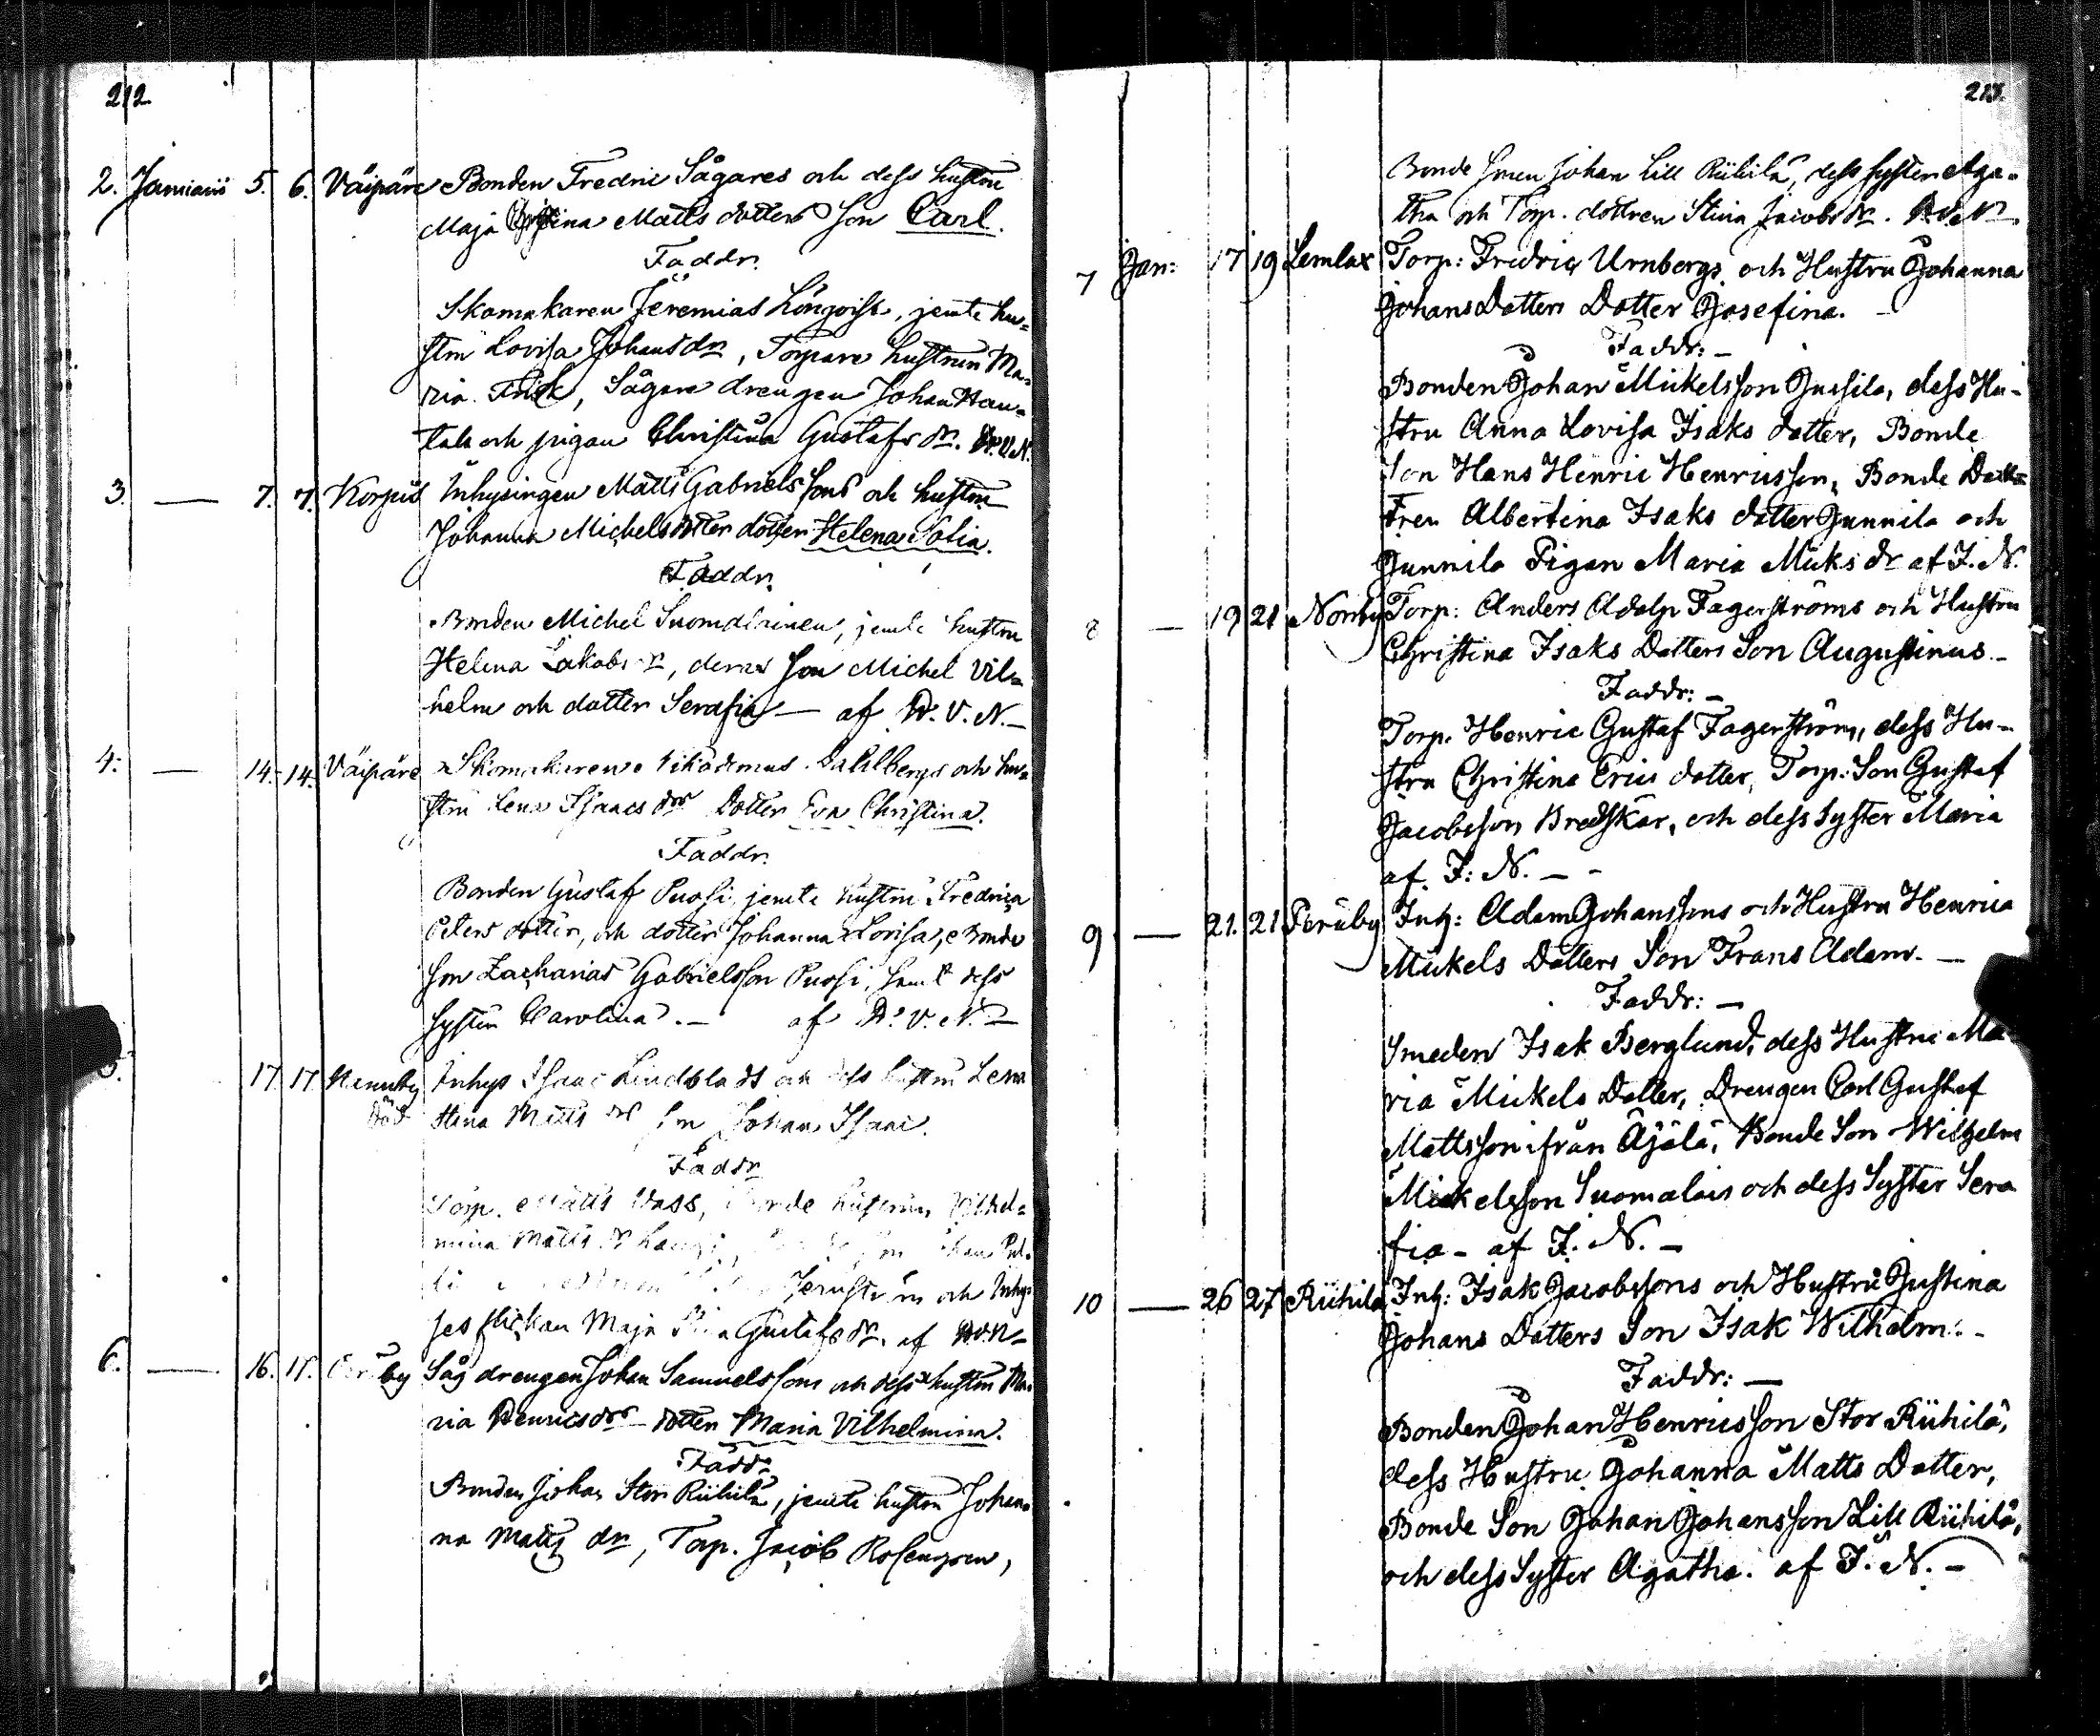 212
2. Januarii 5. 6. Väipäre Bonden Fredric Sågares och dess hustru
Maja Christina Matts dotters Son Carl.
Faddr.
Skomakaren Jeremias Löngvist, jemte hu=
stru Lovisa Johansdr, Torpare hustrun Ma=
ria Frisk, Sågare drengen Johan Han=
tala och pigan Christina Gustafs dr. W.V.N.
3. — 7. 7. Korpis Inhysingen Matts Gabriels sons och hustru
Johanna Michelsdotter dotter Helena Sofia.
Faddr.
Bonden Michel Suomalainen, jemte hustru
Helena Jakobs dr, deras Son Michel Vil=
helm och dotter Serafia — af W. V. N. —
4. — 14. 14. Väipäre Skomakaren Nikodemus Dahlbergs och hu=
stru Lena Isaacs dr Dotter Eva Christina.
Faddr.
Bonden Gustaf Puosi jemte hustru Fredrica
Peters dotter, och dotter Johanna Lovisa, Bonde
Son Zacharias Gabrielsson Puosi, samt dess
syster Carolina. — af W. V. N. —
5. 17. 17. Inhys Isaac Lindblads och dess hustru Lena
Stina Matts dr Son Johan Isaac.
Faddr
Torp. Matts Wass, Bonde hustrun Vilhel=
mina Matts dr
och Inhy=
ses flickan Maja Gustafs dr. af W.V.N —
6. — 16. 17. by Såg drengen Johan Samuelssons och dess hustru Ma=
ria Henricsdrs dotter Maria Vilhelmina.
Faddr
Bonden Johan Stor Riihilä, jemte hustru Johan=
na Matts dr, Torp. Jacob Rosengren,
213.
Bonde Sonen Johan Lill Riihilä, dess syster Aga=
tha och Torp. dottren Stina Jacobs dr. W.V.N —
7 Jan: 17 19 Lemlax Torp: Fredric Urnbergs och Hustru Johanna
Johans Dotters Dotter Josefina. —
Faddr: —
Bonden Johan Mickelsson Jussila, dess Hu-
stru Anna Lovisa Isaks dotter, Bonde
Son Hans Henric Henricsson, Bonde Dott=
ren Albertina Isaks dotter Junnila och
Junnila Pigan Maria Micks dr af J. N.
8 — 19 21 Norrby Torp: Anders Adolp Fagerströms och Hustru
Christina Isaks Dotters Son Augustinus. —
Faddr: —
Torp. Henric Gustaf Fagerström, dess Hu-
stru Christina Erics dotter, Torp: Son Gustaf
Jacobsson Bredskär, och dess Syster Maria
af J: N. — -
9 — 21. 21 Peräby Inh: Adam Johanssons och Hustru Henrica
Mickels Dotters Son Frans Adam. —
Faddr: —
Smeden Isak Berglund, dess Hustru Ma
ria Mickels Dotter, Drengen Carl Gustaf
Mattsson ifrån Äjälä, Bonde Son Wilhelm
Mickelsson Suomalais och dess Syster Sera
fia - af J. N. —
10 — 26 27 Riihilä Inh: Isak Jacobssons och Hustru Justina
Johans Dotters Son Isak Wilhelm. -
Faddr: —
Bonden Johan Henricsson Stor Riihilä,
dess Hustru Johanna Matts Dotter,
Bonde Son Johan Johansson Lill Riihilä,
och dess Syster Agatha. af J. N. —